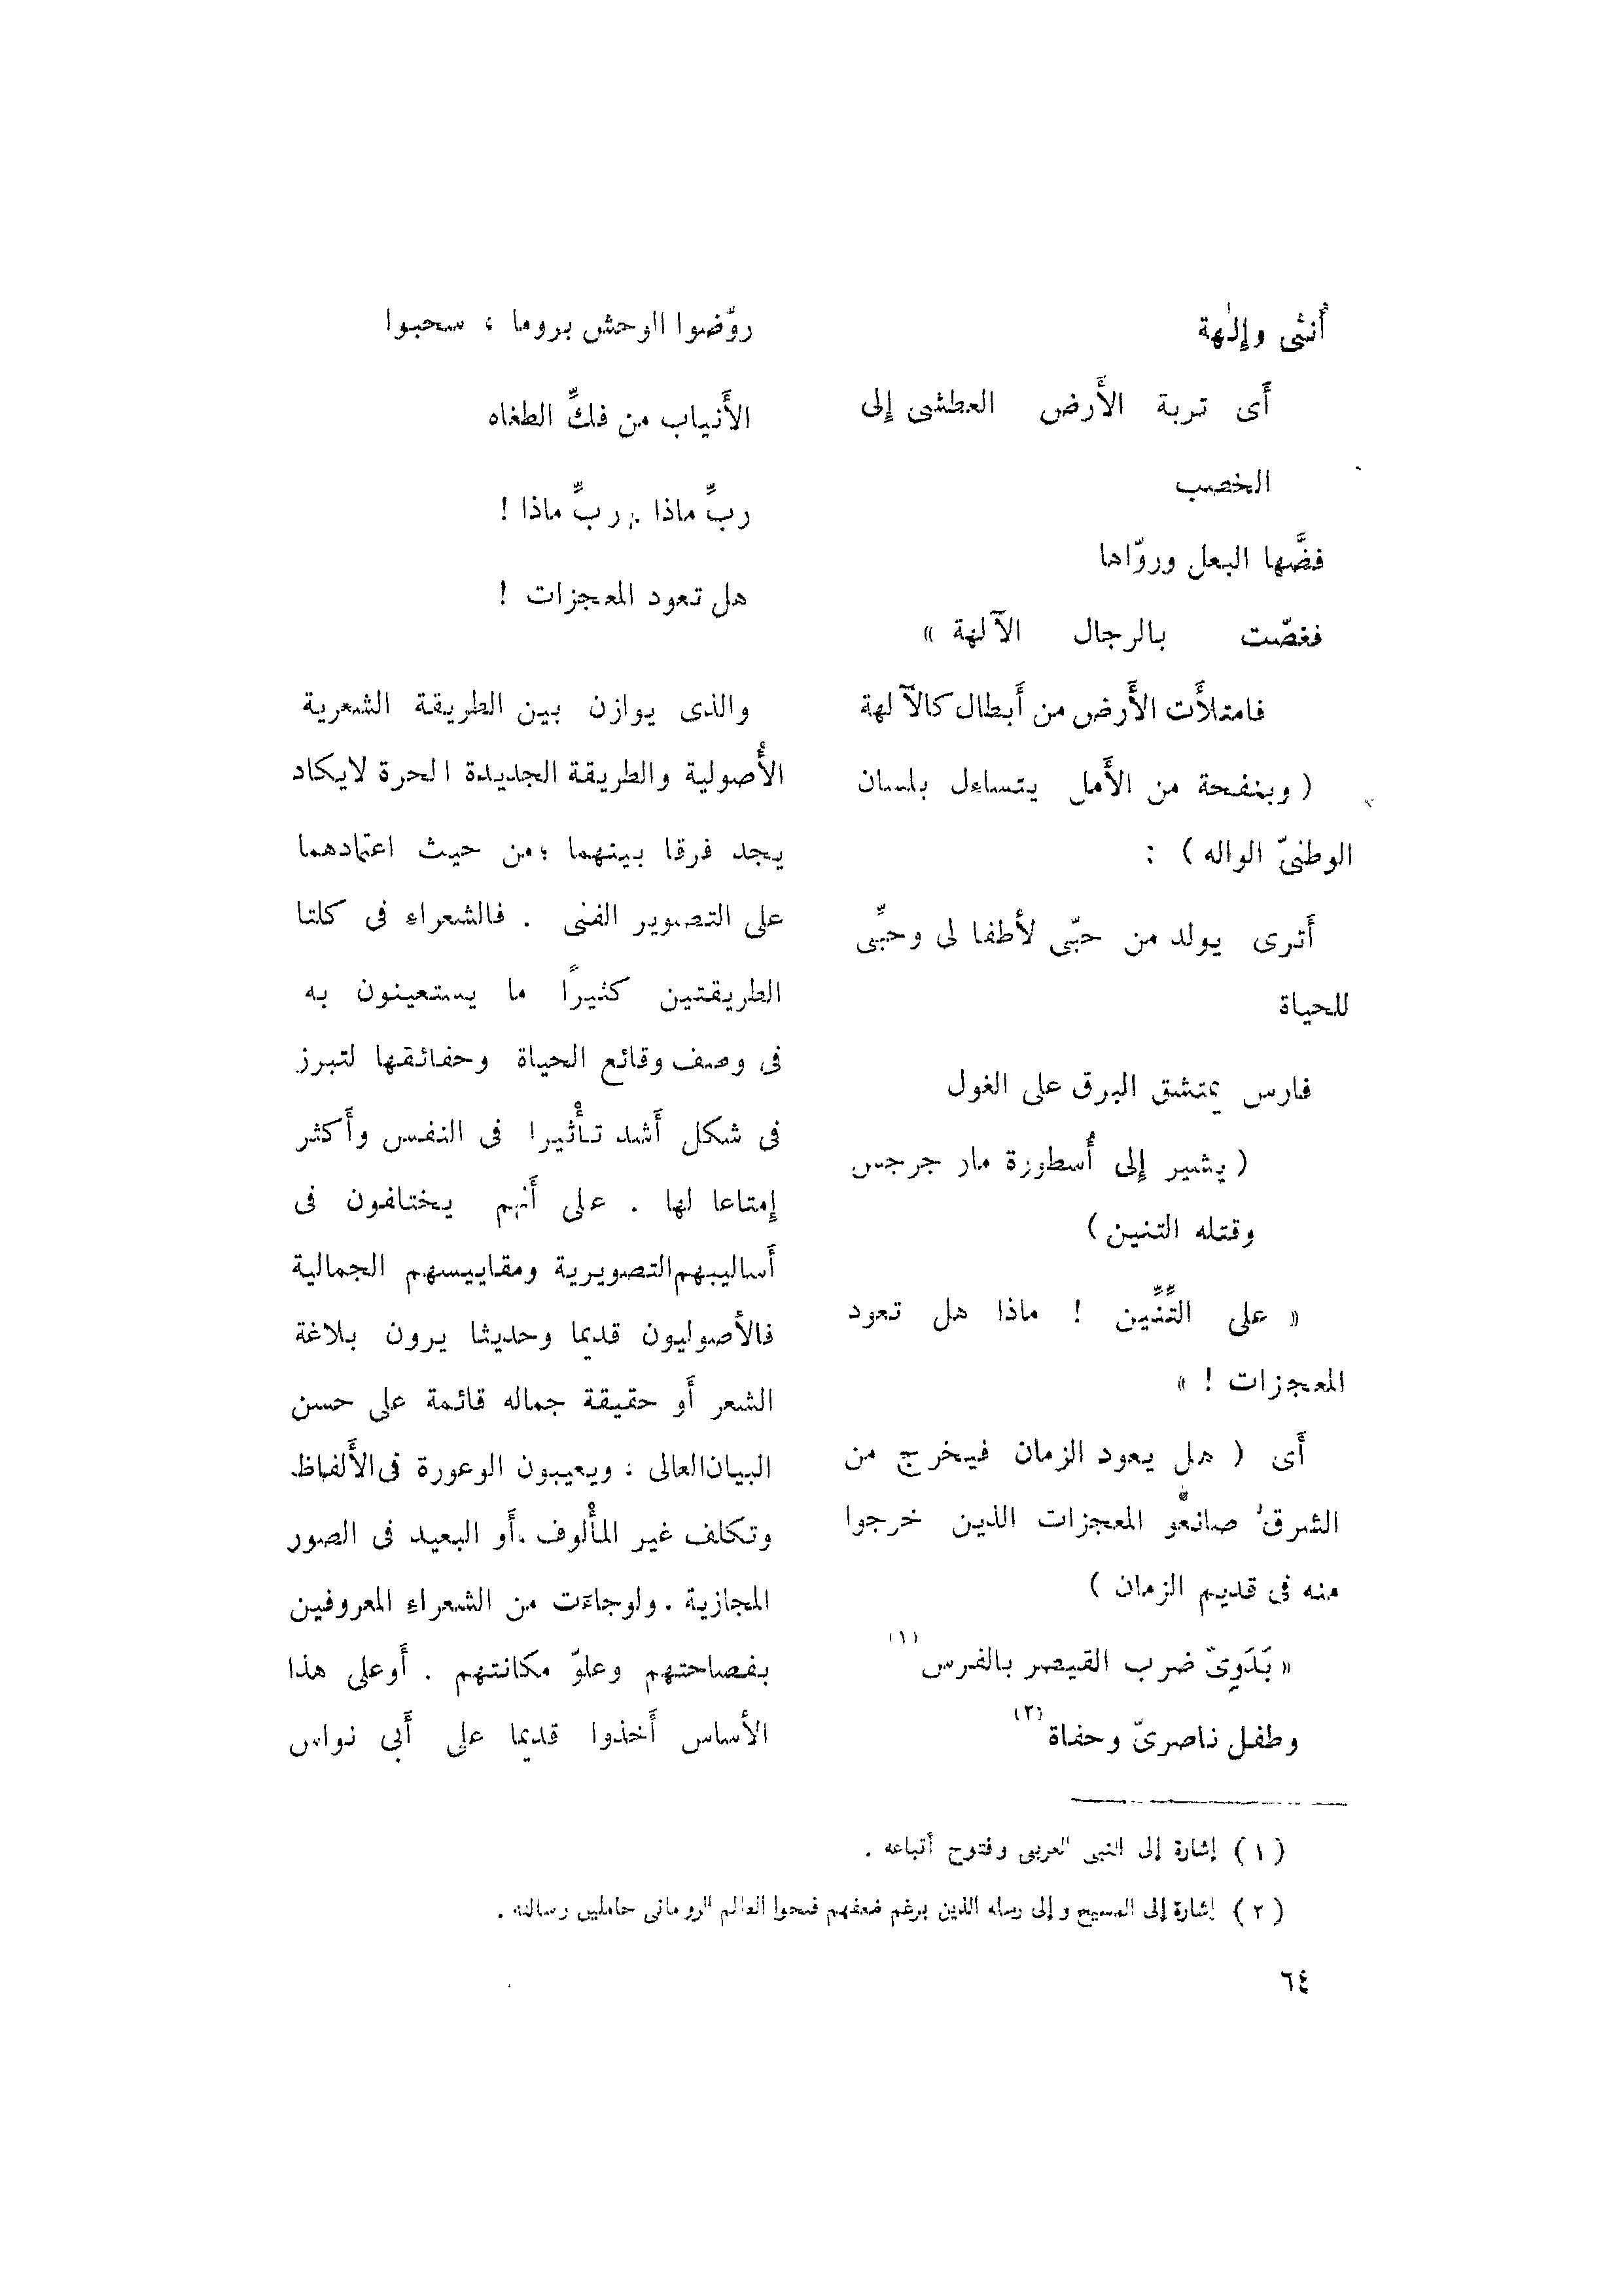 أُنثى وإلٰهة
أَى تربة الأَرض العطشى إلى
الخصب
فضَّها البعل وروّاها
فغصّت بالرجال الآلهة »
فامتلأَت الأَرض من أَبطال كالآلهة
( وبنفحة من الأَمل يتساءل بلسان
الوطنىّ الواله ) :
أَترى يولد من حبّى لأطفا لى وحبِّى
للحياة
فارس يمتشق البرق على الغول
( يشير إلى أُسطورة مار جرجس
وقتله التنين )
« على التِّنِّين ! ماذا هل تعود
المعجزات ! »
أَى ( هل يعود الزمان فيخرج من
الشرق صانعُو المعجزات الذين خرجوا
منه فى قديم الزمان )
« بَدَوِىّ ضرب القيصر بالفرس (١)
وطفل ناصرىّ وحفاة (٢)
روّضوا الوحش بروما ، سحبوا
الأَنياب من فكِّ الطغاه
ربِّ ماذا ، ربِّ ماذا !
هل تعود المعجزات !
والذى يوازن بين الطريقة الشعرية
الأُصولية والطريقة الجديدة الحرة لايكاد
يجد فرقا بينهما ؛من حيث اعتمادهما
على التصوير الفنى . فالشعراء فى كلتا
الطريقتين كثيرًا ما يستعينون به
فى وصف وقائع الحياة وحقائقها لتبرز
فى شكل أَشد تأْثيرا فى النفس وأَكثر
إمتاعا لها . على أَنهم يختلفون فى
أَساليبهم التصويرية ومقاييسهم الجمالية
فالأصوليون قديما وحديثا يرون بلاغة
الشعر أَو حقيقة جماله قائمة على حسن
البيان العالى ؛ ويعيبون الوعورة فى الأَلفاظ
وتكلف غير المأْلوف ،أَو البعيد فى الصور
المجازية . ولوجاءت من الشعراء المعروفين
بفصاحتهم وعلوّ مكانتهم . أَوعلى هذا
الأساس أَخذوا قديما على أَبى نواس
( ١ ) إشارة إلى النبى العربى وفتوح أتباعه .
( ٢ ) إشارة إلى المسيح وإلى رسله الذين برغم ضعفهم فتحوا العالم الرومانى حاملين رسالته .
٦٤